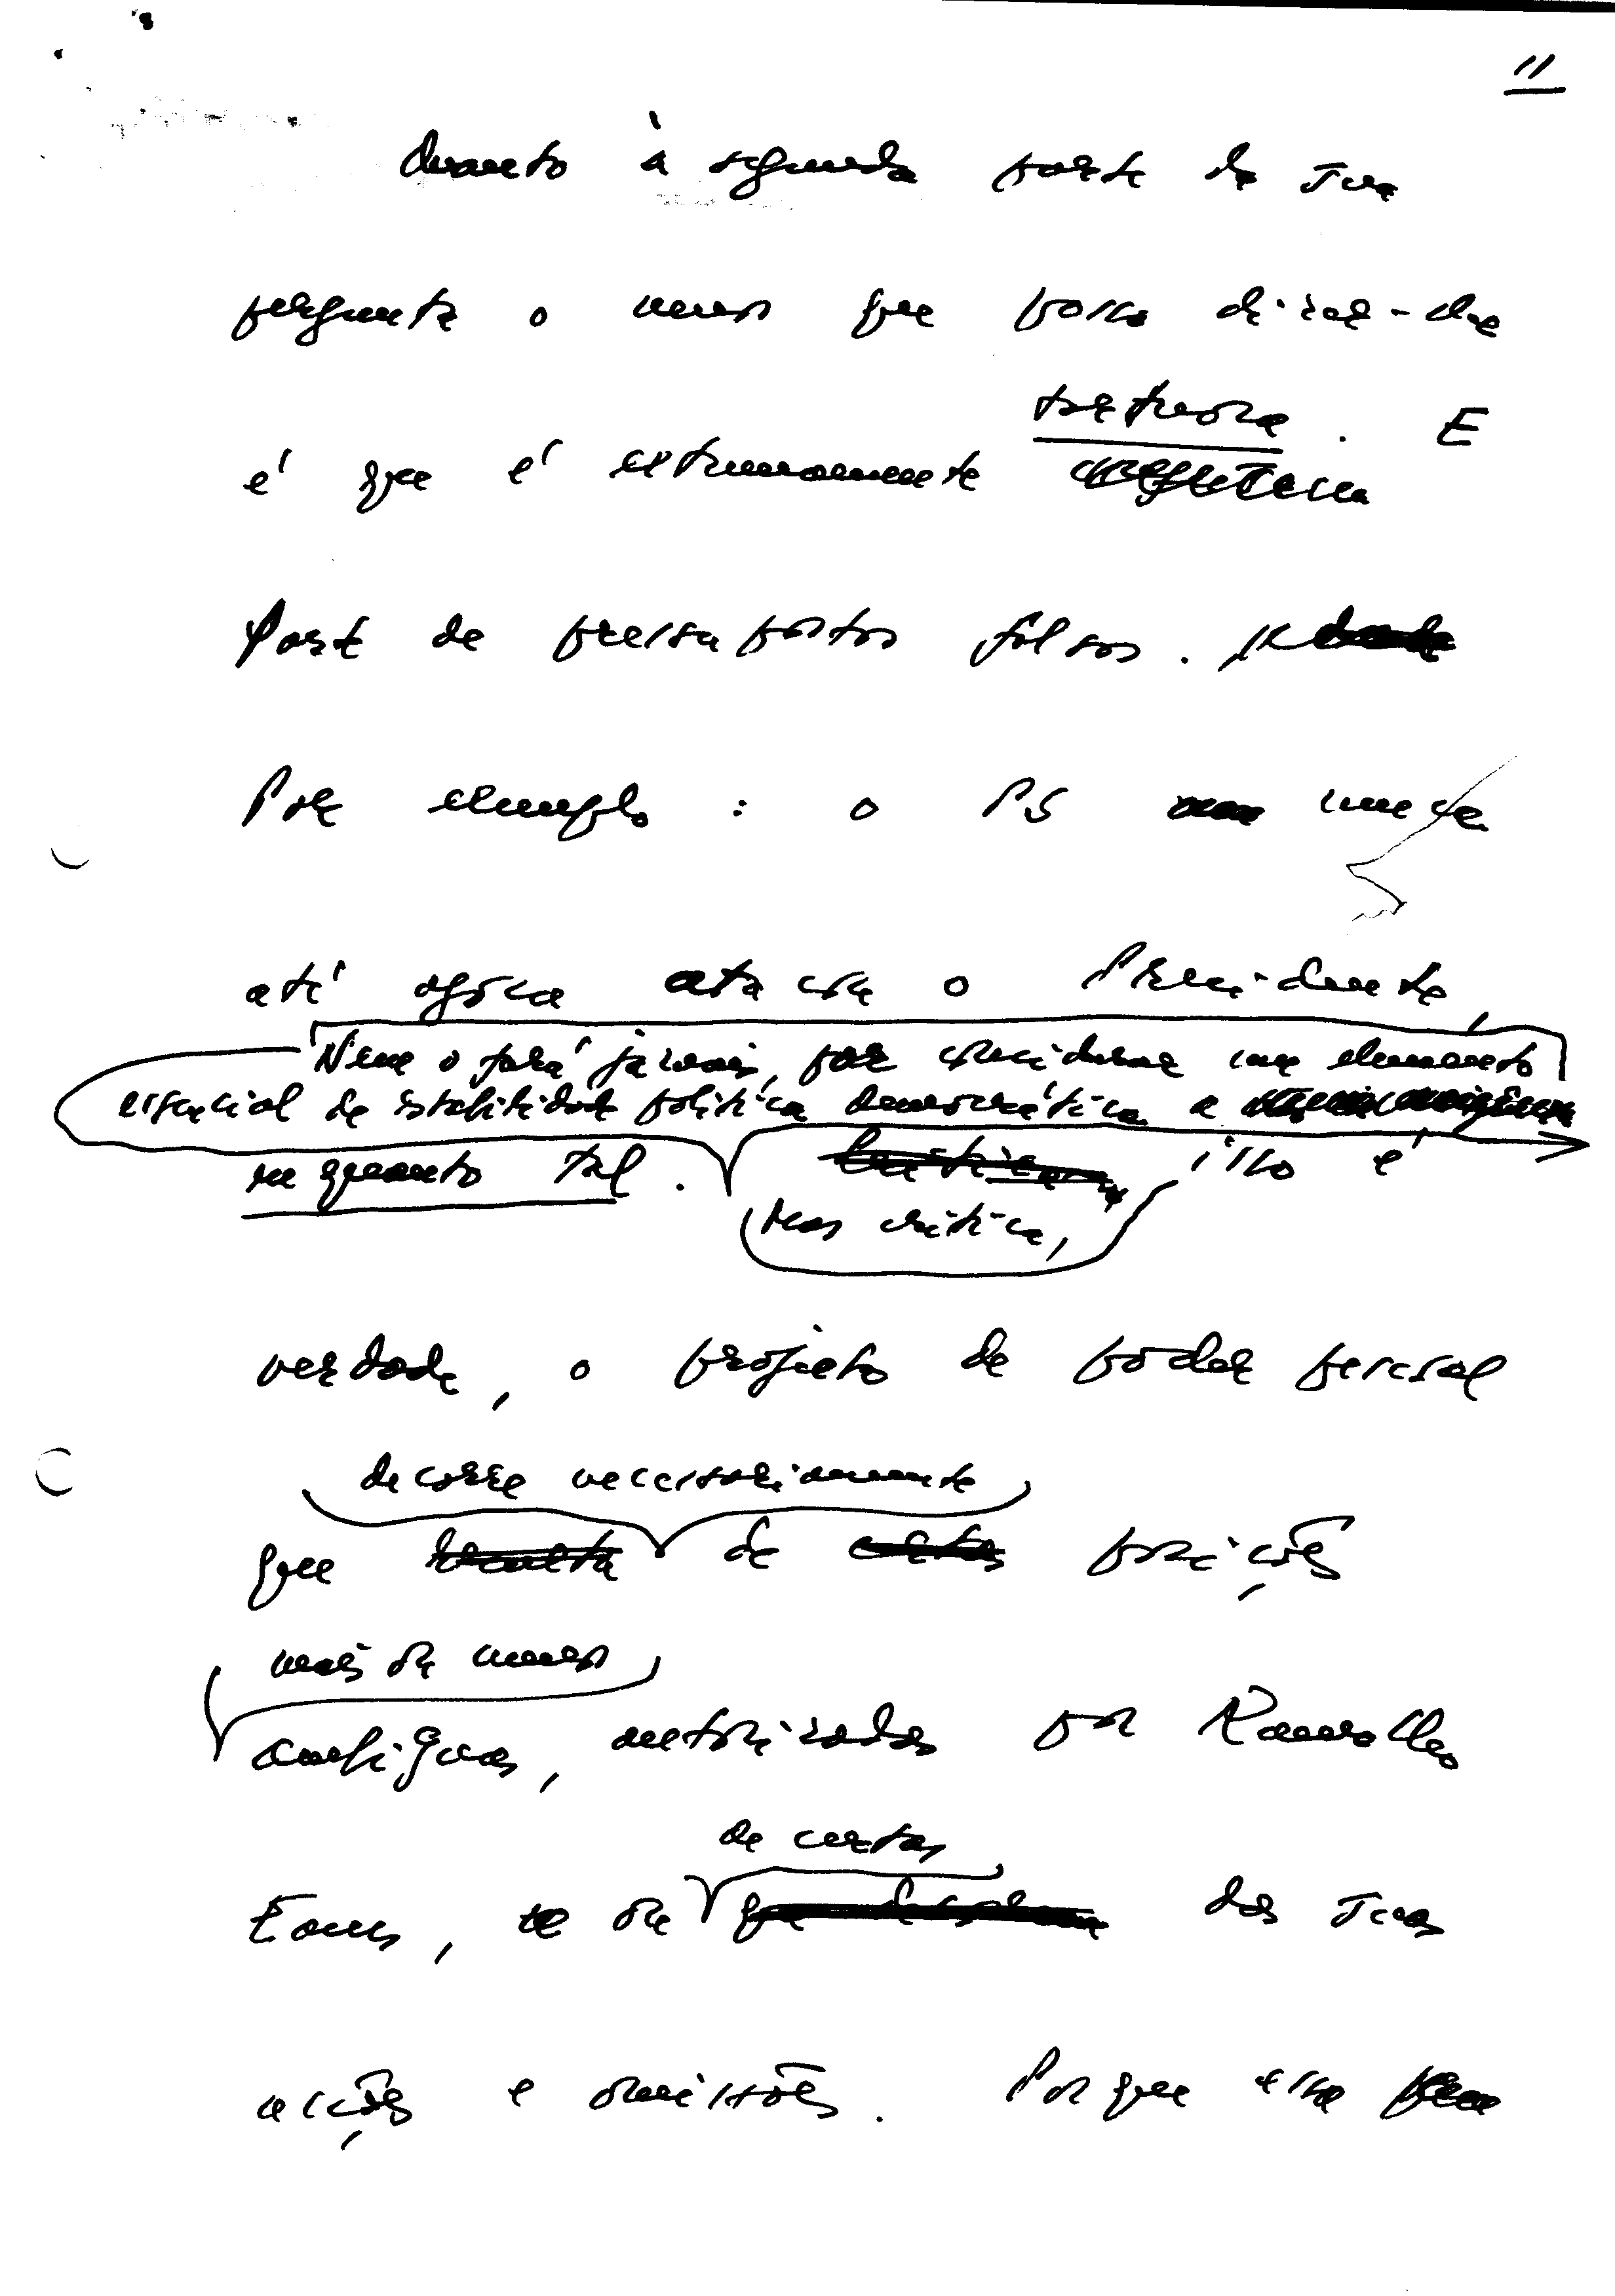 11
Quanto à segunda parte da sua
pergunta o menos que posso dizer-lhe
tortuosa. E
é que é extremamente
parte de pressupostos falsos.
Por exemplo: o PS nunca
até agora atacou o Presidente,
Nem o fará jamais, por considerar um elemento
essencial de estabilidade política democrática a
enquanto tal. isso é
Mas critica,
verdade, o projecto de poder pessoal
decorre necessariamente
que de posições
mais ou menos
ambíguas, autorizadas por Ramalho
de certas
Eanes, ou das suas
acções e omissões. Porque esse